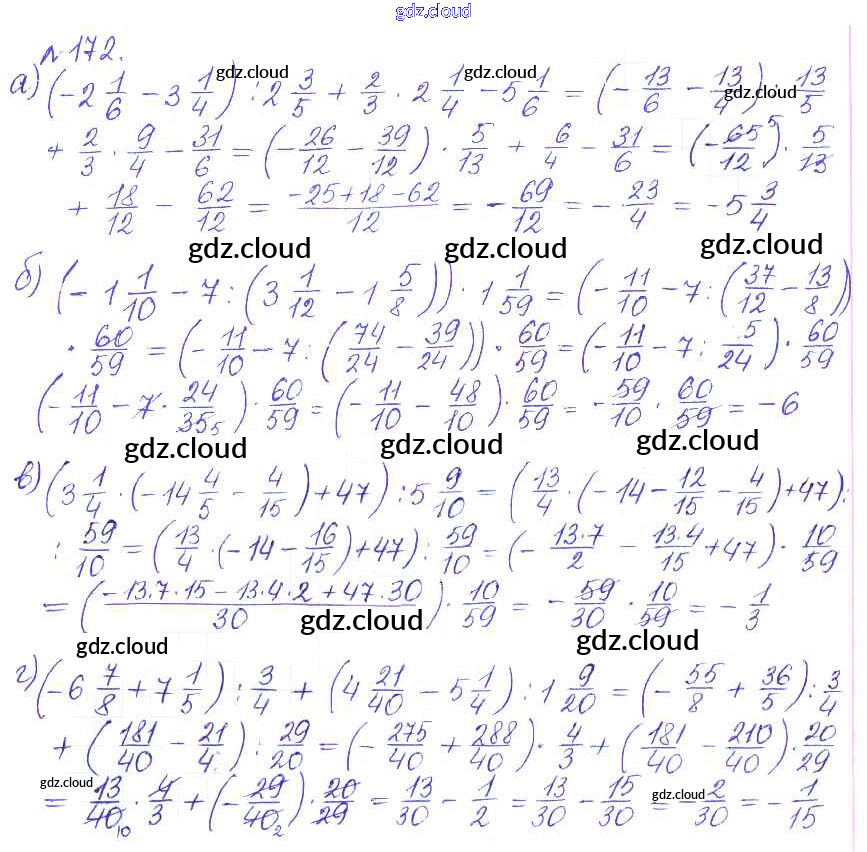 gdz.cloud
№172.
а) (-2 1/6 - 3 1/4) : 2 3/5 + 2/3 · 2 1/4 - 5 1/6 = (- 13/6 - 13/4) · 13/5
+ 2/3 · 9/4 - 31/6 = (- 26/12 - 39/12) · 5/13 + 6/4 - 31/6 = (- 65/12)⁵ · 5/13
+ 18/12 - 62/12 = (-25+18-62)/12 = - 69/12 = - 23/4 = -5 3/4
gdz.cloud gdz.cloud gdz.cloud
б) (- 1 1/10 - 7 : (3 1/12 - 1 5/8)) · 1 1/59 = (- 11/10 - 7 : (37/12 - 13/8))
· 60/59 = (- 11/10 - 7 : (74/24 - 39/24)) · 60/59 = (- 11/10 - 7 : 5/24) · 60/59
(- 11/10 - 7 · 24/35₅) · 60/59 = (- 11/10 - 48/10) · 60/59 = - 59/10 · 60/59 = -6
gdz.cloud gdz.cloud gdz.cloud
в) (3 1/4 · (-14 4/5 - 4/15) + 47) : 5 9/10 = (13/4 · (-14 - 12/15 - 4/15) + 47) :
: 59/10 = (13/4 · (-14 - 16/15) + 47) : 59/10 = (- 13·7/2 - 13·4/15 + 47) · 10/59
= ((-13·7·15 - 13·4·2 + 47·30)/30) · 10/59 = - 59/30 · 10/59 = - 1/3
gdz.cloud gdz.cloud gdz.cloud
г) (-6 7/8 + 7 1/5) : 3/4 + (4 21/40 - 5 1/4) : 1 9/20 = (- 55/8 + 36/5) : 3/4
+ (181/40 - 21/4) : 29/20 = (- 275/40 + 288/40) · 4/3 + (181/40 - 210/40) · 20/29
= 13/40₁₀ · 4/3 + (- 29/40₂) · 20/29 = 13/30 - 1/2 = 13/30 - 15/30 = - 2/30 = - 1/15
gdz.cloud gdz.cloud
gdz.cloud gdz.cloud